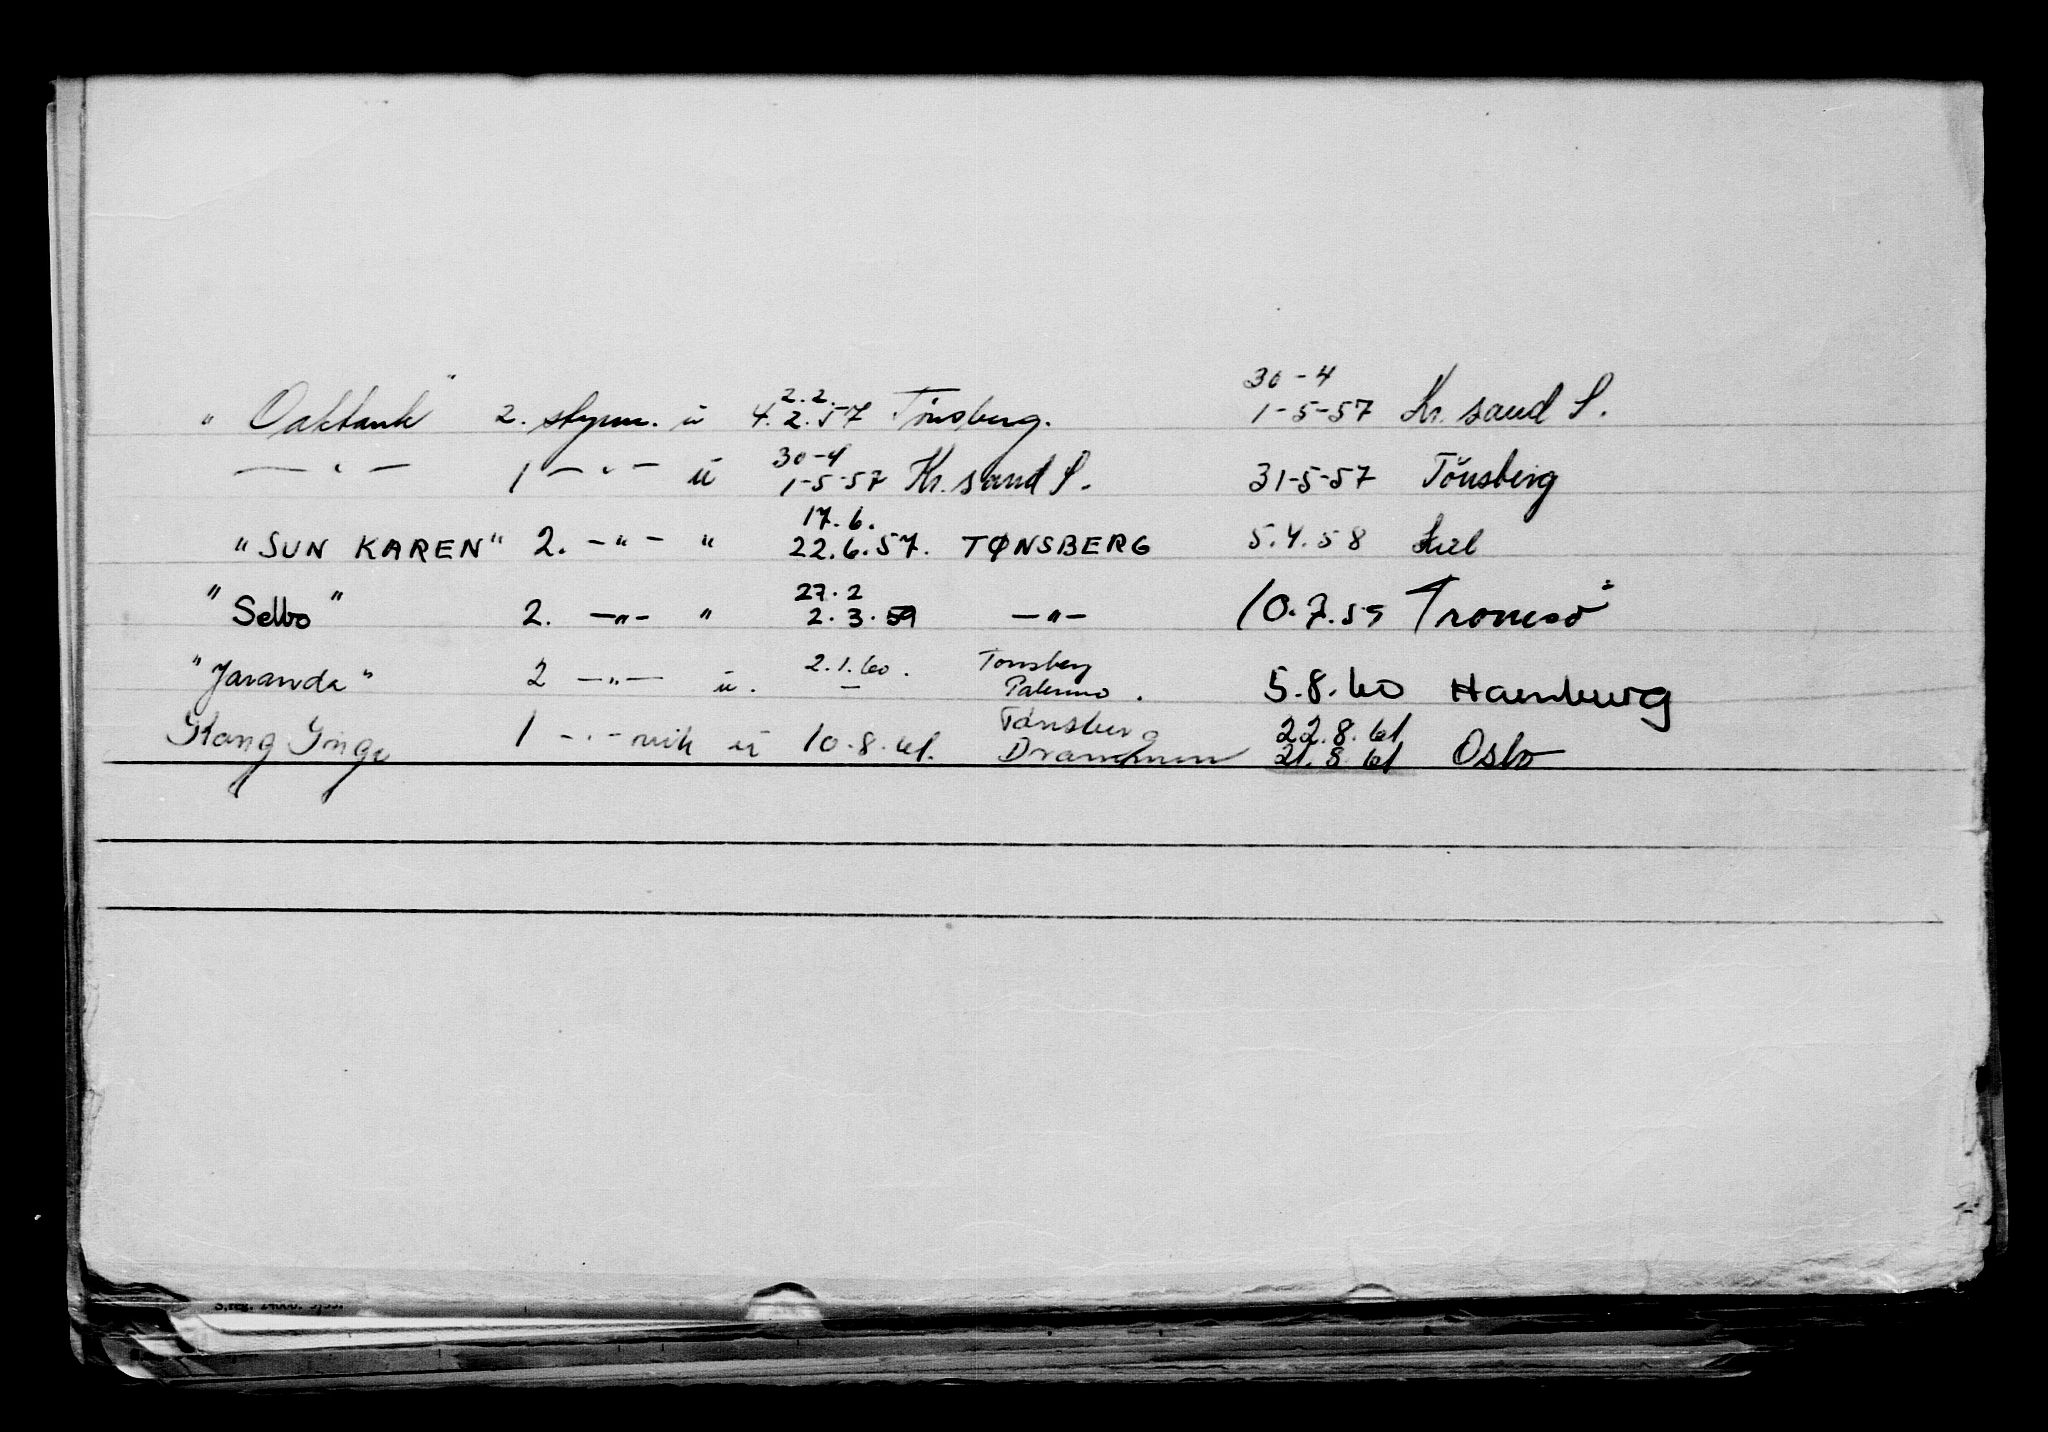 30-4
" Oaktank " 2. styrm. u 2.2. 4.2.57 Tönsberg. 1-5-57 Kr. sand S.
— " — 1 — " — u 30-4 1-5-57 Kr. sand S. 31-5-57 Tönsberg
"SUN KAREN" 2. — " — " 17.6. 22.6.57. TØNSBERG 5.4.58 Kiel
"Selbo" 2. — " — " 27.2 2.3.59 — " — 10.7.59 Tromsö
"Jaranda" 2 — " — u. 2.1.60. — Tønsberg Palermo. 5.8.60 Hamburg
Kong Inge 1 — " — vik u 10.8.61. Tönsberg Drammen 22.8.61 21.8.61 Oslo